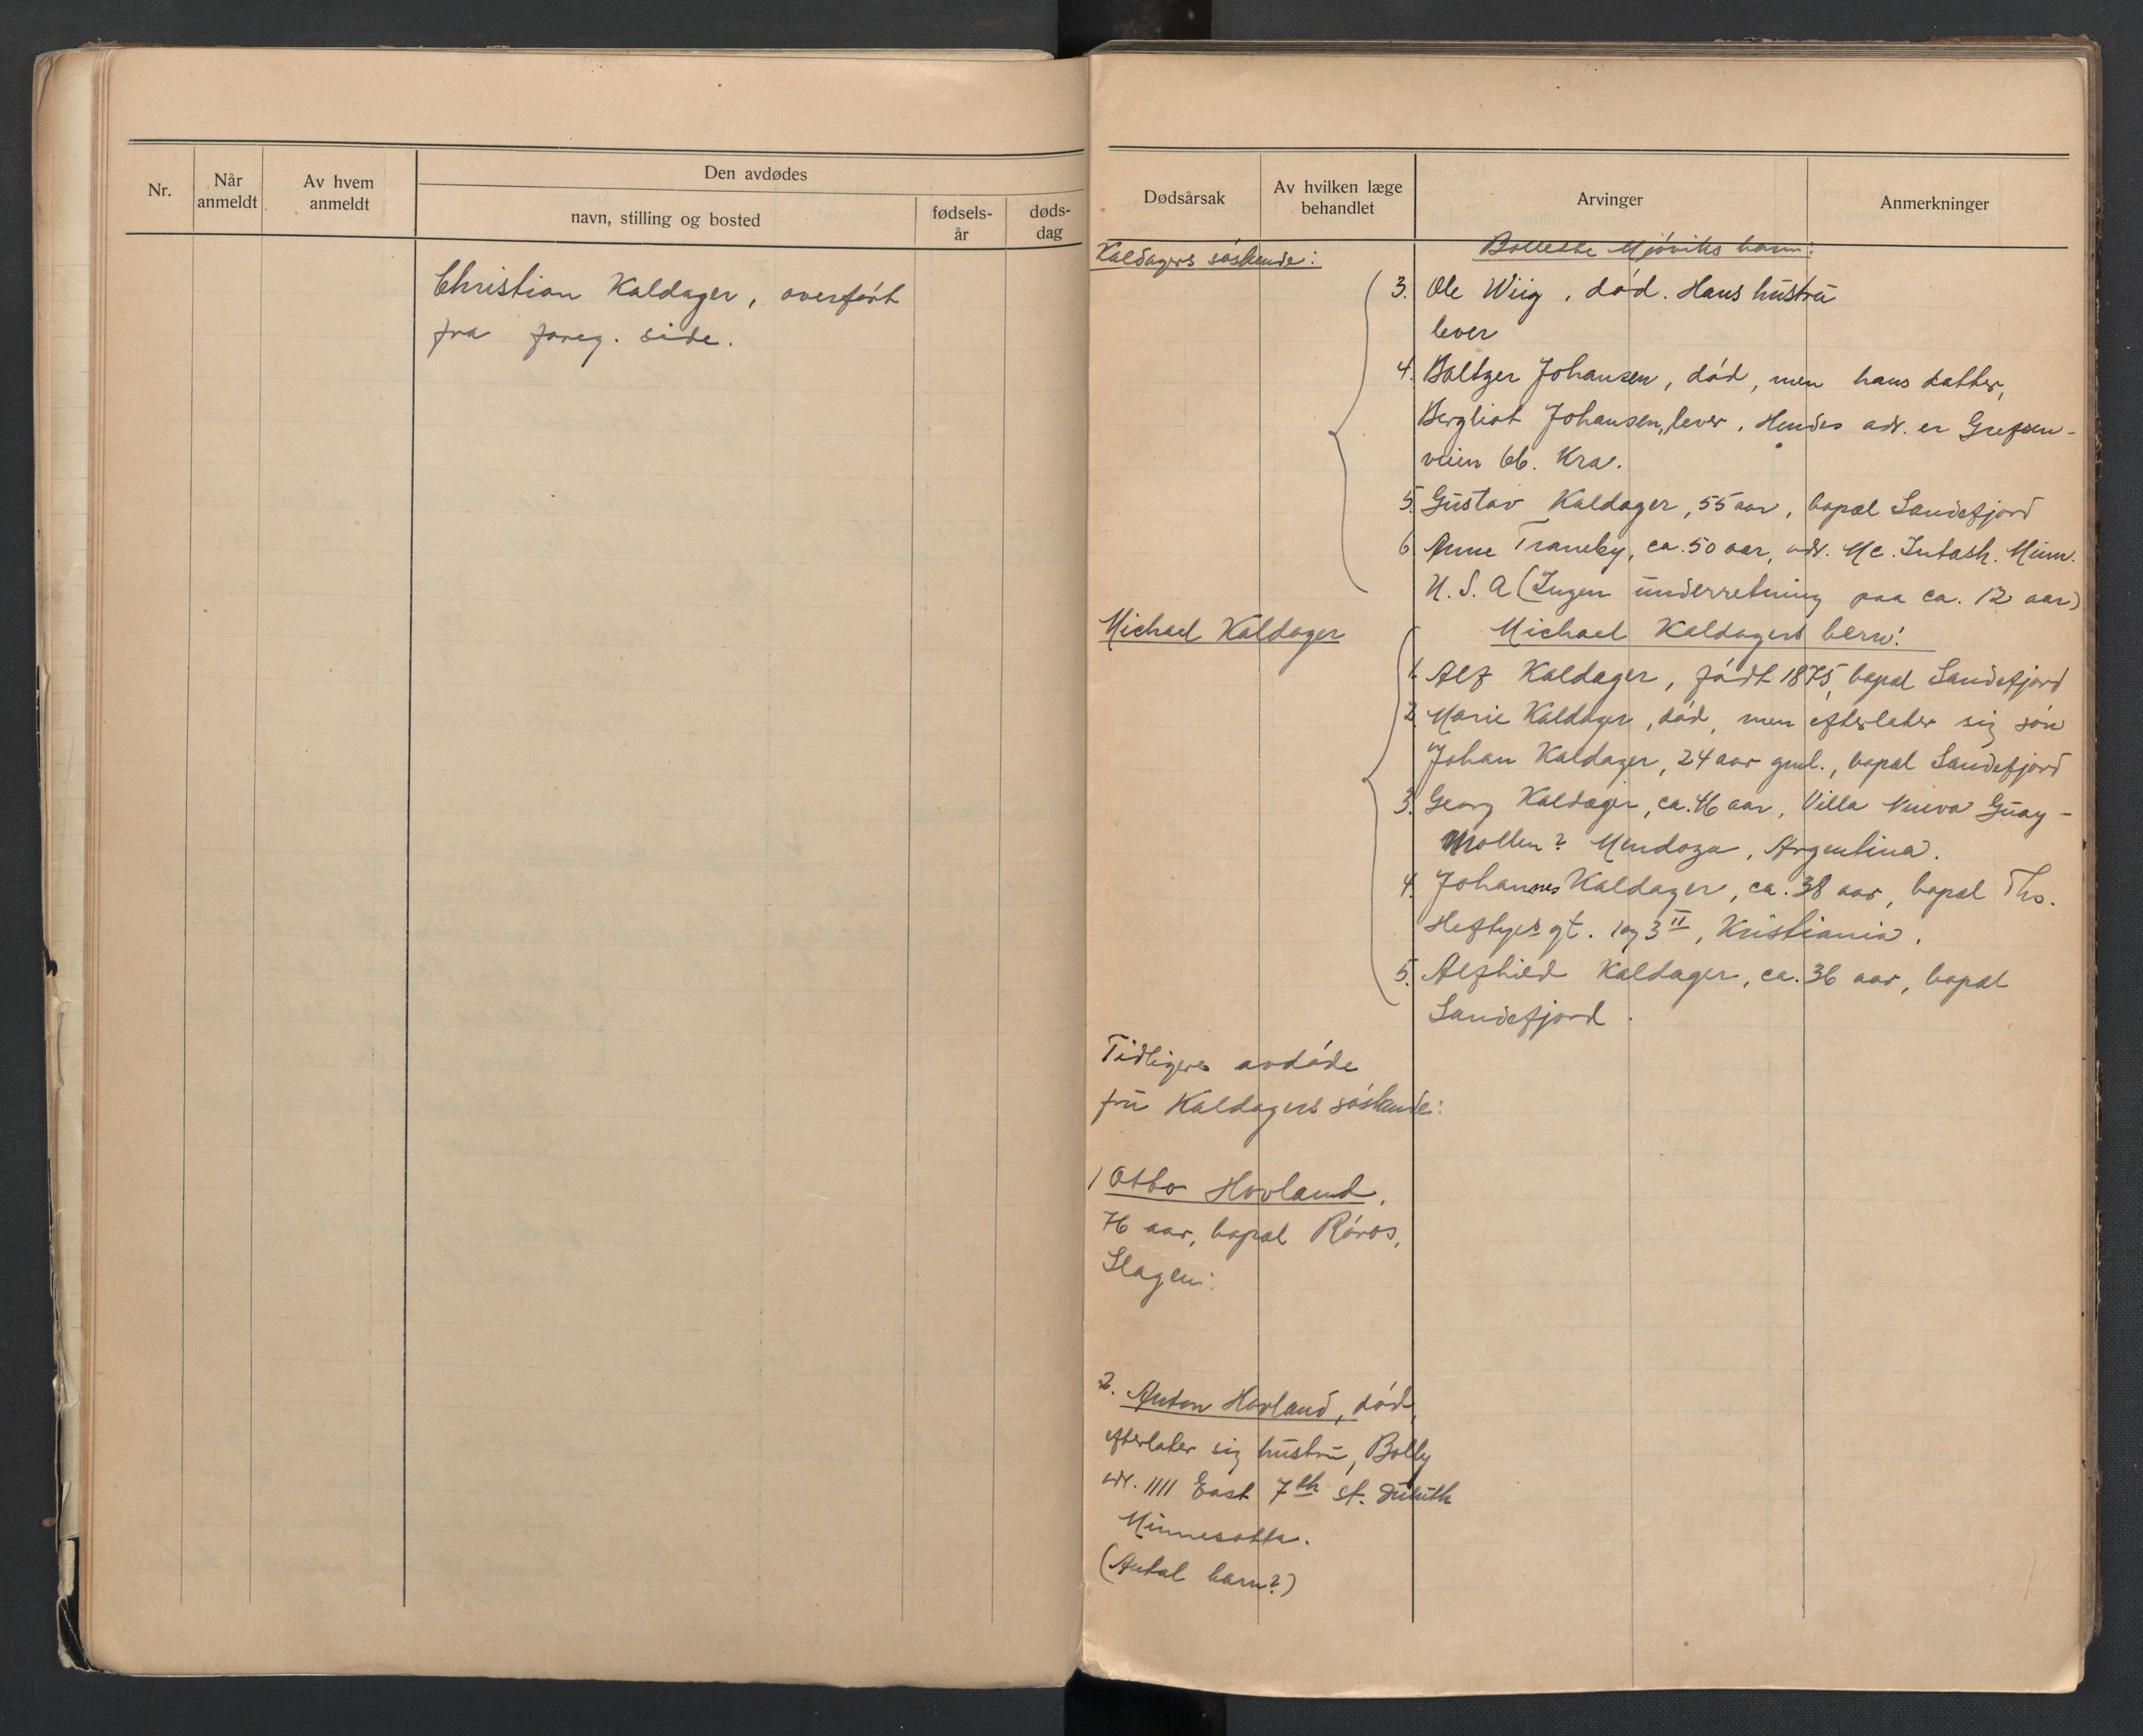 Nr.
Når anmeldt
Av hvem anmeldt
Den avdødes
navn, stilling og bosted
fødsels-år
døds-dag
Christian Kaldager, overført
fra foreg. side.
Dødsårsak
Av hvilken læge behandlet
Arvinger
Anmerkninger
Kaldagers søskende:
Bollette Mjøviks barn:
3. Ole Wiig, død. Hans hustru
lever
4. Baltzer Johansen, død, men hans datter,
Bergliot Johansen, lever. Hendes adr. er Grefsen-
veien 66. Kra.
5. Gustav Kaldager, 55 aar, bopæl Sandefjord
6. Anne Traneby, ca. 50 aar, adr. Mc. Intash. Minn.
U. S. A (Ingen underretning paa ca. 12 aar)
Michael Kaldager
Michael Kaldagers børn:
1. Alf Kaldager, født 1875, bopæl Sandefjord
2. Marie Kaldager, død, men efterlater sig søn
Johan Kaldager, 24 aar gml., bopæl Sandefjord
3. Georg Kaldager, ca. 46 aar, Villa Nueva Guay-
mollen? Mendoza, Argentina.
4. Johannes Kaldager, ca. 38 aar, bopæl Tho.
Heftyes gt. 1 og 3 II, Kristiania.
5. Alfhild Kaldager, ca. 36 aar, bopæl
Sandefjord.
Tidligere avdøde
fru Kaldagers søskende:
1 Otto Hovland,
76 aar, bopæl Røros,
Slagen.
2. Anton Hovland, død,
efterlater sig hustru, Bolly
adr. 1111 East 7th st. Duluth
Minnesotta.
(Antal barn?)